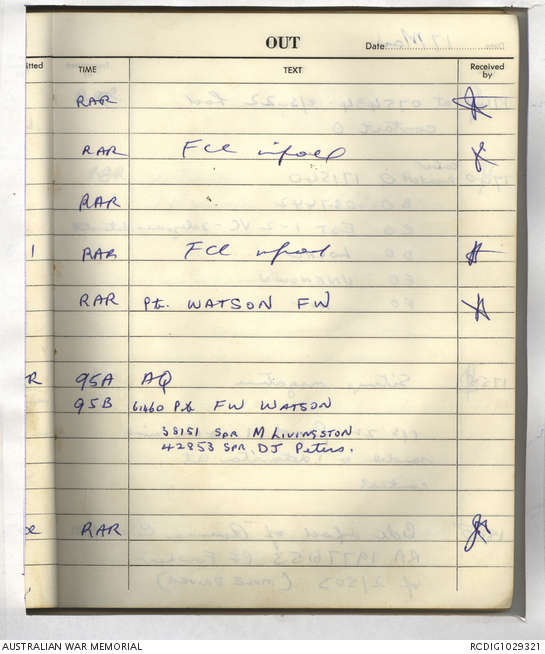 OUT
Date
itted TIME TEXT Received by
RAR
RAR FCE infoed
RAR
1 RAR FCE infoed
RAR Pte. WATSON FW
R 95A AQ
95B 61460 Pte FW WATSON
38151 SPR M LIVINGSTON
42853 SPR DJ Peters.
RAR
AUSTRALIAN WAR MEMORIAL RCDIG1029321